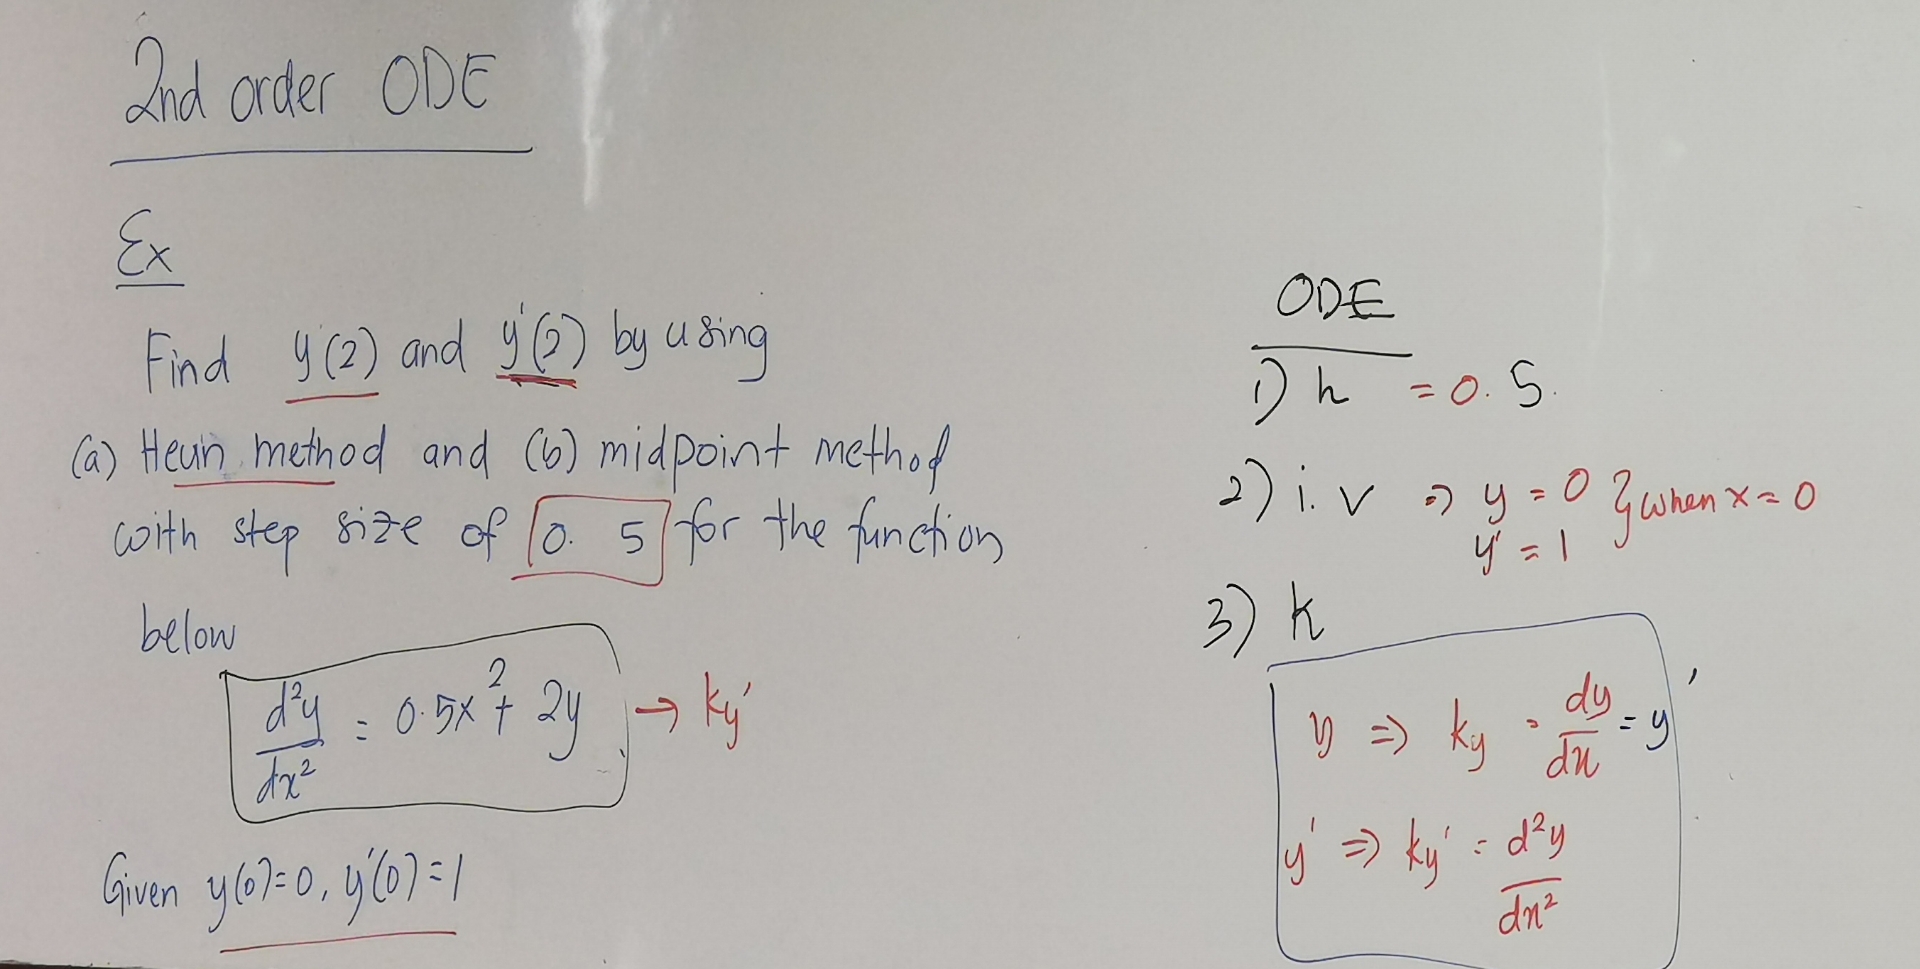 2nd order ODE
Ex
Find y(2) and y'(2) by using
(a) Heun method and (b) midpoint method
with step size of 0.5 for the function
below
d²y/dx² = 0.5x² + 2y → ky'
Given y(0)=0, y'(0)=1
ODE
1) h = 0.5.
2) i.v ⇒ y = 0 } when x = 0
y' = 1
3) k
y ⇒ ky = dy/dx = y'
y' ⇒ ky' = d²y/dx²